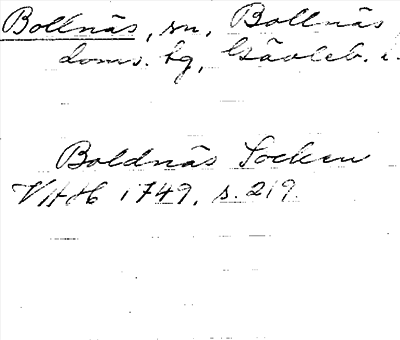 Bollnäs, sn, Bollnäs
doms. hg, Gävleb. l.
Boldnäs Socken
VAH 1749, s. 219.